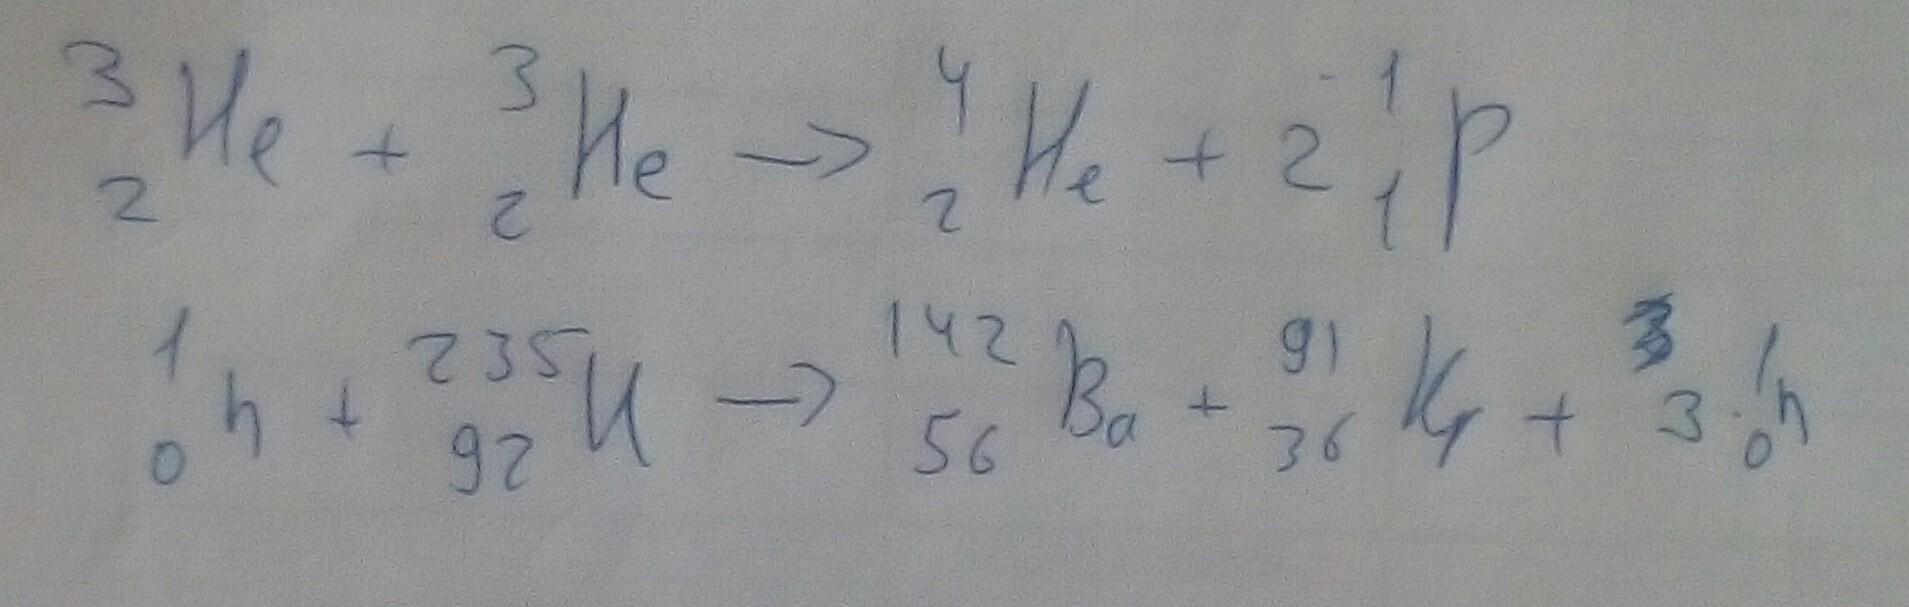 ³₂He + ³₂He → ⁴₂He + 2 ¹₁p
¹₀n + ²³⁵₉₂U → ¹⁴²₅₆Ba + ⁹¹₃₆Kr + 3 · ¹₀n